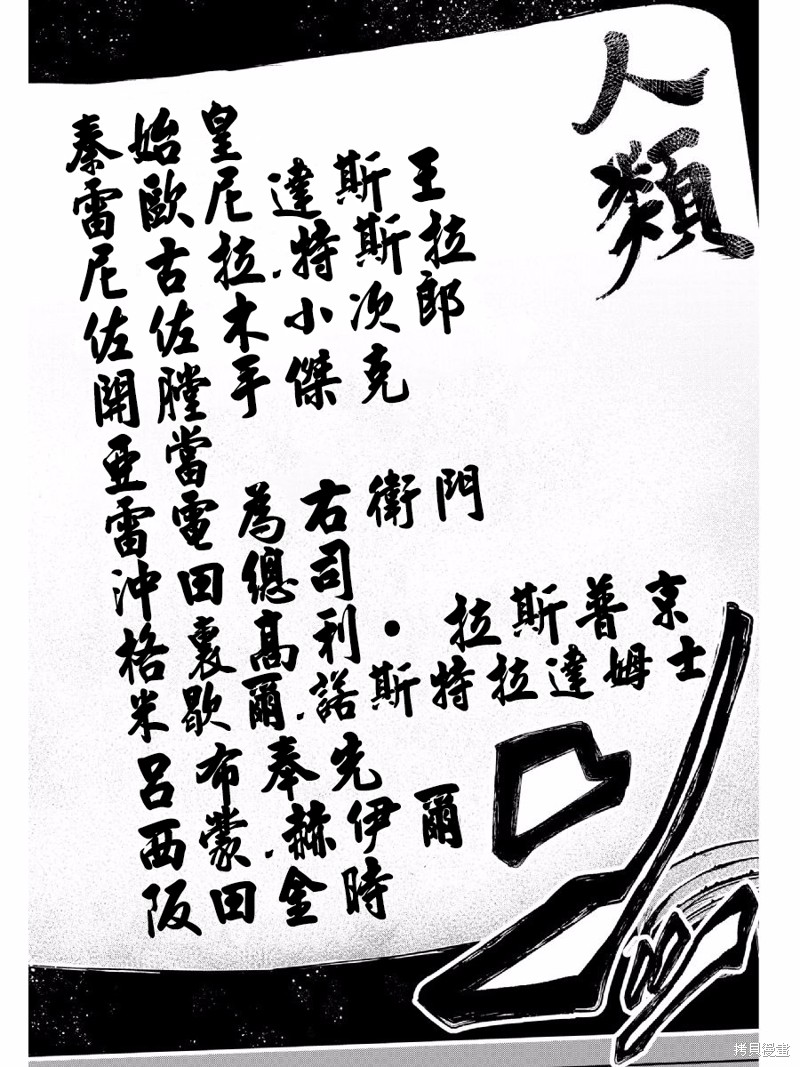 人類
秦始皇
雷歐尼達斯王
尼古拉·特斯拉
佐佐木小次郎
開膛手傑克
亞當
雷電為右衛門
沖田總司
格里高利·拉斯普京
米歇爾·諾斯特拉達姆士
呂布奉先
西蒙·赫伊爾
阪田金時
拷貝漫畫